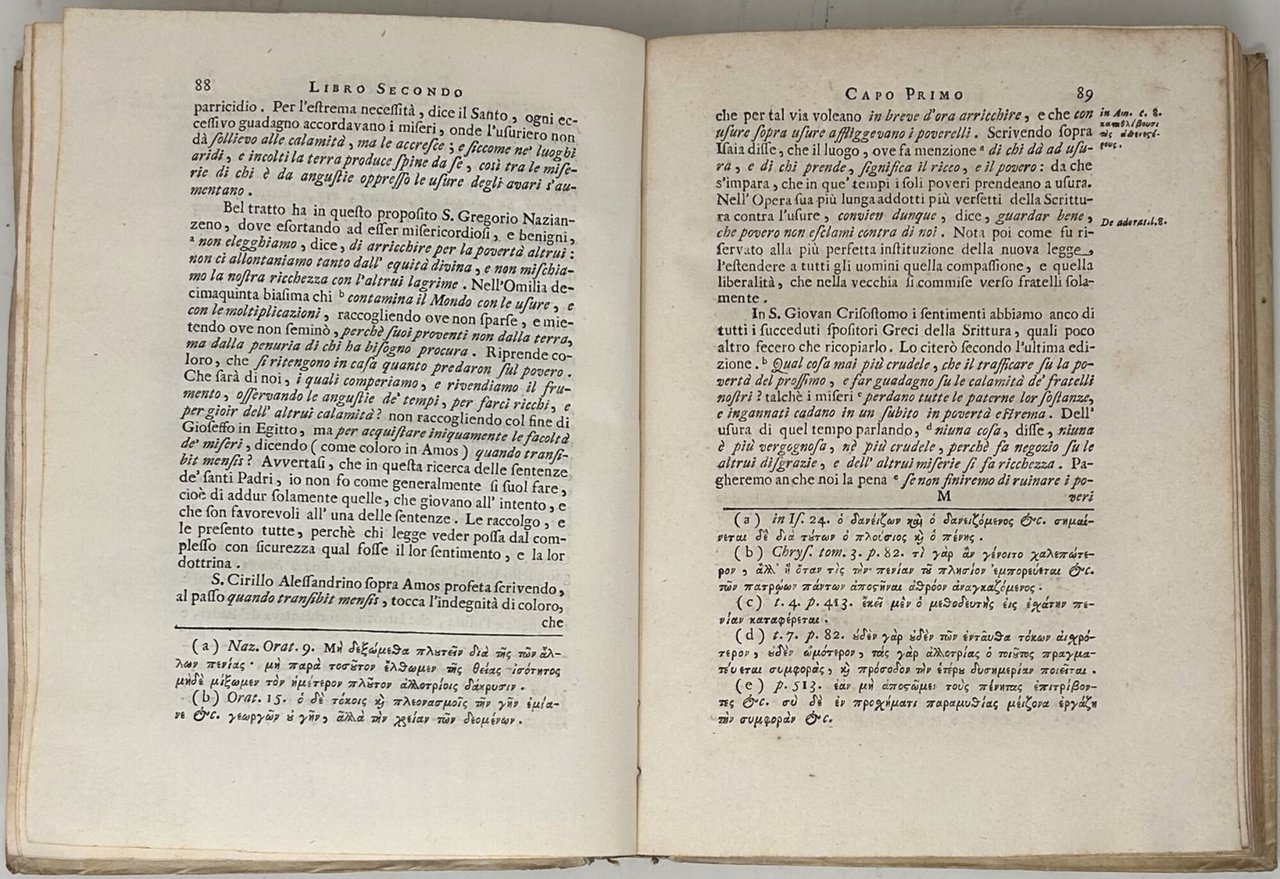 88 LIBRO SECONDO
parricidio. Per l'eſtrema neceſſità, dice il Santo, ogni ec-
ceſſivo guadagno accordavano i miſeri, onde l'uſuriero non
dà ſollievo alle calamità, ma le accreſce; e ſiccome ne' luoghi
aridi, e incolti la terra produce ſpine da ſe, così tra le miſe-
rie di chi è da anguſtie oppreſſo le uſure degli avari s'au-
mentano.
Bel tratto ha in queſto propoſito S. Gregorio Nazian-
zeno, dove eſortando ad eſſer miſericordioſi, e benigni,
ª non elegghiamo, dice, di arricchire per la povertà altrui:
non ci allontaniamo tanto dall' equità divina, e non miſchia-
mo la noſtra ricchezza con l'altrui lagrime. Nell'Omilia de-
cimaquinta biaſima chi ᵇ contamina il Mondo con le uſure, e
con le moltiplicazioni, raccogliendo ove non ſparſe, e mie-
tendo ove non ſeminò, perchè ſuoi proventi non dalla terra,
ma dalla penuria di chi ha biſogno procura. Riprende co-
loro, che ſi ritengono in caſa quanto predaron ſul povero.
Che farà di noi, i quali comperiamo, e rivendiamo il fru-
mento, oſſervando le anguſtie de' tempi, per farci ricchi, e
per gioir dell' altrui calamità? non raccogliendo col fine di
Gioſeffo in Egitto, ma per acquiſtare iniquamente le facoltà
de' miſeri, dicendo (come coloro in Amos) quando tranſi-
bit menſis? Avvertaſi, che in queſta ricerca delle ſentenze
de' ſanti Padri, io non fo come generalmente ſi ſuol fare,
cioè di addur ſolamente quelle, che giovano all' intento, e
che ſon favorevoli all' una delle ſentenze. Le raccolgo, e
le preſento tutte, perchè chi legge veder poſſa dal com-
pleſſo con ſicurezza qual foſſe il lor ſentimento, e la lor
dottrina.
S. Cirillo Aleſſandrino ſopra Amos profeta ſcrivendo,
al paſſo quando tranſibit menſis, tocca l'indegnità di coloro,
che
(a) Naz. Orat. 9. Μὴ δεξώμεθα πλυτεῖν διὰ τῆς τῶν ἄλ-
λων πενίας· μὴ παρὰ τοσῦτον ἔλθωμεν τῆς θείας ἰσότητος
μηδὲ μίξωμεν τὸν ἡμέτερον πλῦτον ἀλλοτρίοις δάκρυσιν.
(b) Orat. 15. ὁ δὲ τόκοις ϗ πλεονασμοῖς τὴν γῆν ἐμία-
νε &c. γεωργῶν ȣ γῆν, ἀλλὰ τὴν χρείαν τῶν δεομένων.
CAPO PRIMO 89
che per tal via voleano in breve d'ora arricchire, e che con
uſure ſopra uſure affliggevano i poverelli. Scrivendo ſopra
Iſaia diſſe, che il luogo, ove fa menzione ª di chi dà ad uſu-
ra, e di chi prende, ſignifica il ricco, e il povero: da che
s'impara, che in que' tempi i ſoli poveri prendeano a uſura.
Nell' Opera ſua più lunga addotti più verſetti della Scrittu-
ra contra l'uſure, convien dunque, dice, guardar bene,
che povero non eſclami contra di noi. Nota poi come fu ri-
ſervato alla più perfetta inſtituzione della nuova legge,
l'eſtendere a tutti gli uomini quella compaſſione, e quella
liberalità, che nella vecchia ſi commiſe verſo fratelli ſola-
mente.
In S. Giovan Criſoſtomo i ſentimenti abbiamo anco di
tutti i ſucceduti ſpoſitori Greci della Scrittura, quali poco
altro fecero che ricopiarlo. Lo citerò ſecondo l'ultima edi-
zione. ᵇ Qual coſa mai più crudele, che il trafficare ſu la po-
vertà del proſſimo, e far guadagno ſu le calamità de' fratelli
noſtri? talchè i miſeri ᶜ perdano tutte le paterne lor ſoſtanze,
e ingannati cadano in un ſubito in povertà eſtrema. Dell'
uſura di quel tempo parlando, ᵈ niuna coſa, diſſe, niuna
è più vergognoſa, nè più crudele, perchè fa negozio ſu le
altrui diſgrazie, e dell' altrui miſerie ſi fa ricchezza. Pa-
gheremo anche noi la pena ᵉ ſe non finiremo di ruinare i po-
M veri
in Am. c. 8.
καταθλίβουσι
τὰς
De adorat. l. 8.
(a) in Iſ. 24. ὁ δανείζων καὶ ὁ δανειζόμενος &c. σημαί-
νεται δὲ διὰ τύτων ὁ πλούσιος ϗ ὁ πένης.
(b) Chryſ. tom. 3. p. 82. τὶ γὰρ ἂν γένοιτο χαλεπώτε-
ρον, ἀλλ' ἢ ὅταν τὶς τὴν πενίαν τῦ πλησίον ἐμπορεύεται &c.
τῶν πατρῴων πάντων ἀποςῆναι ἀθρόον ἀναγκαζόμενος.
(c) t. 4. p. 413. ἐκεῖ μὲν ὁ μεθοδευτὴς εἰς ἐχάτην πε-
νίαν καταφέρεται.
(d) t. 7. p. 82. ȣδὲν γὰρ ȣδὲν τῶν ἐνταῦθα τόκων αἰχρό-
τερον, ȣδὲν ὠμότερον, τὰς γὰρ ἀλλοτρίας ὁ τοιῦτος πραγμα-
τέυεται συμφορὰς, ϗ πρόσοδον τὴν ἑτέρȣ δυσημερίαν ποιεῖται.
(e) p. 513. ἐαν μὴ ἀποςῶμεν τοὺς πένητας ἐπιτρίβον-
τες &c. σὺ δὲ ἐν προχήματι παραμυθίας μείζονα ἐργάζῃ
τὴν συμφορὰν &c.